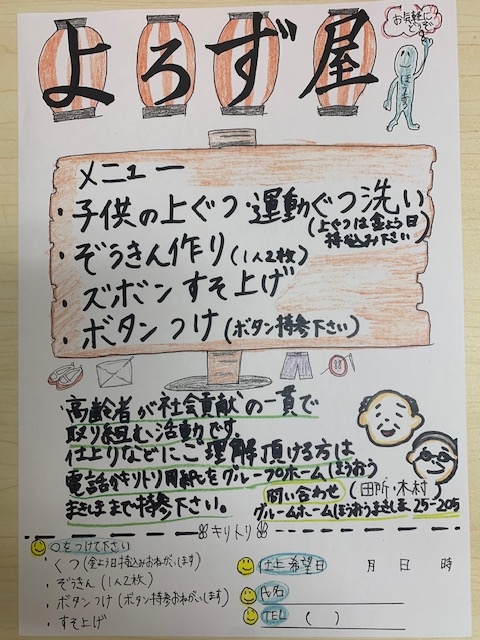 よろず屋
お気軽に
どうぞ
メニュー
・子供の上ぐつ・運動ぐつ洗い
(上ぐつは金よう日
持込み下さい)
・ぞうきん作り(1人2枚)
・ズボンすそ上げ
・ボタンつけ(ボタン持参下さい)
高齢者が社会貢献の一貫で
取り組む活動です。
仕上りなどにご理解頂ける方は
電話かキリトリ用紙をグループホームほうおう
まきしままで持参下さい。
問い合わせ(田所・木村)
グループホームほうおうまきしま 25-205
キリトリ
○をつけて下さい
・くつ(金よう日持込みおねがいします)
・ぞうきん(1人2枚)
・ボタンつけ(ボタン持参おねがいします)
・すそ上げ
仕上希望日 月 日 時
氏名
TEL ( )